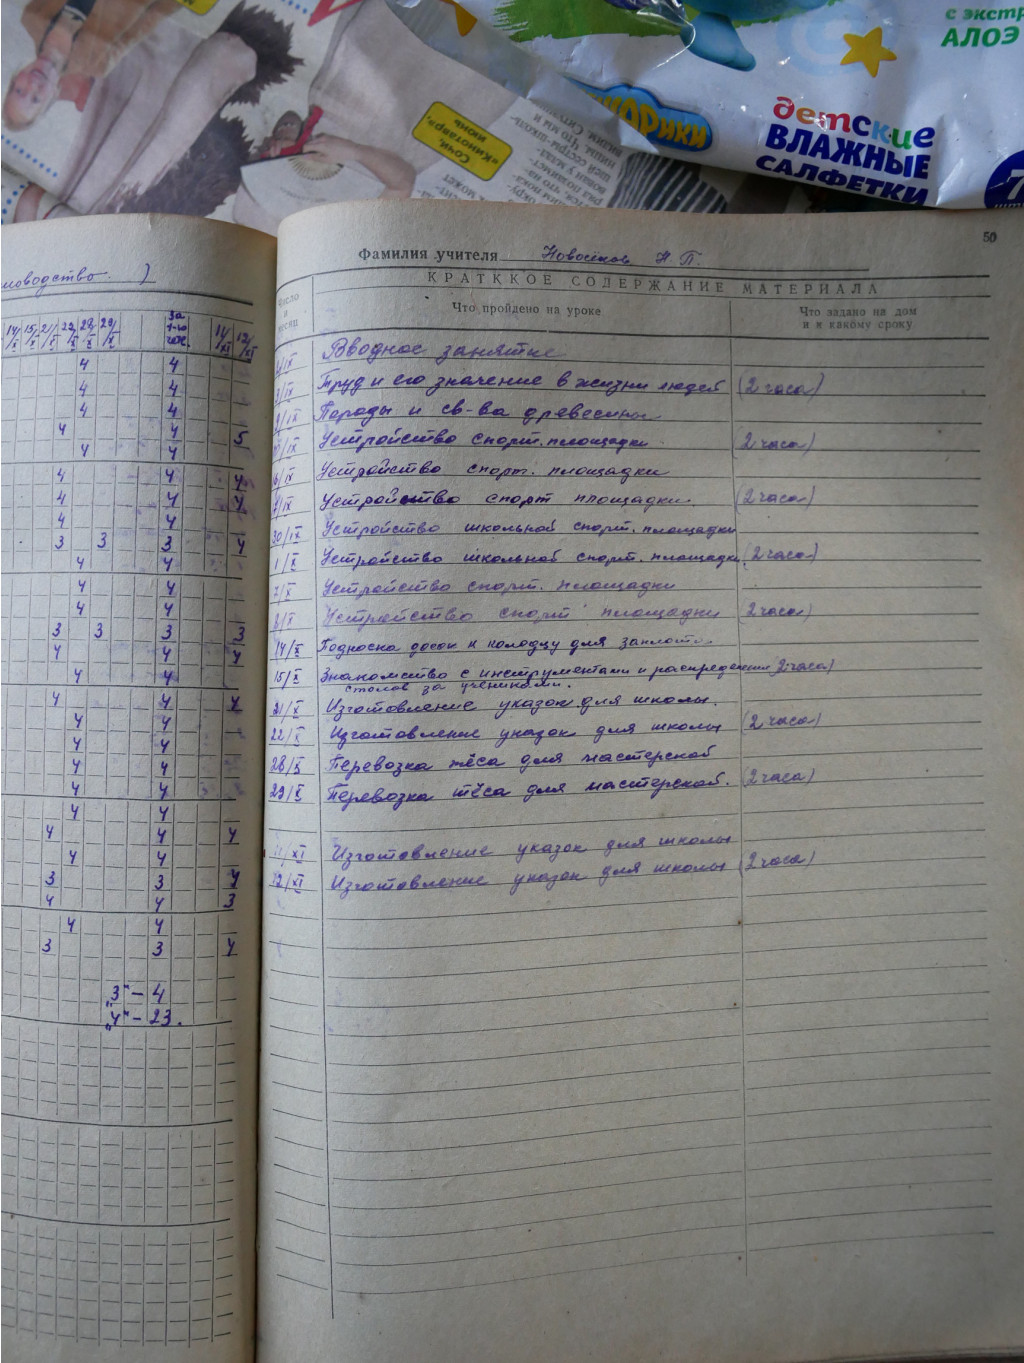 с экстр
АЛОЭ
детские
ВЛАЖНЫЕ
САЛФЕТКИ
СОЧИ,
«Кинотавр»,
июнь
50
Фамилия учителя Новоселов Н. П.
КРАТККОЕ СОДЕРЖАНИЕ МАТЕРИАЛА
Число и месяц
Что пройдено на уроке
Что задано на дом и к какому сроку
Вводное занятие
Труд и его значение в жизни людей (2 часа)
9/IX Породы и св-ва древесины
Устройство спорт. площадки (2 часа)
Устройство спорт. площадки
Устройство спорт площадки (2 часа)
30/IX Устройство школьной спорт. площадки
1/X Устройство школьной спорт. площадки (2 часа)
7/X Устройство спорт. площадки
8/X Устройство спорт площадки (2 часа)
14/X Подноска досок к колодцу для
15/X Знакомство с инструментами и распределение (2 часа)
столов за учениками.
21/X Изготовление указок для школы.
22/X Изготовление указок для школы (2 часа)
28/X Перевозка тёса для мастерской
29/X Перевозка тёса для мастерской. (2 часа)
11/XI Изготовление указок для школы
12/XI Изготовление указок для школы (2 часа)
14/X 15/X 21/X 22/X 28/X 29/X за 1-ю чет. 11/XI 12/XI
4 4
4 4
4 4
4 4 5
4 4
4 4 4
4 4 4
4 4
3 3 3 4
4 4
4 4
4 4
3 3 3 3
4 4 4
4 4
4 4 4
4 4
4 4
4 4
4 4
4 4
4 4 4
4 4
3 3 4
4 4 3
4 4
3 3 4
„3" - 4
„4" - 23.